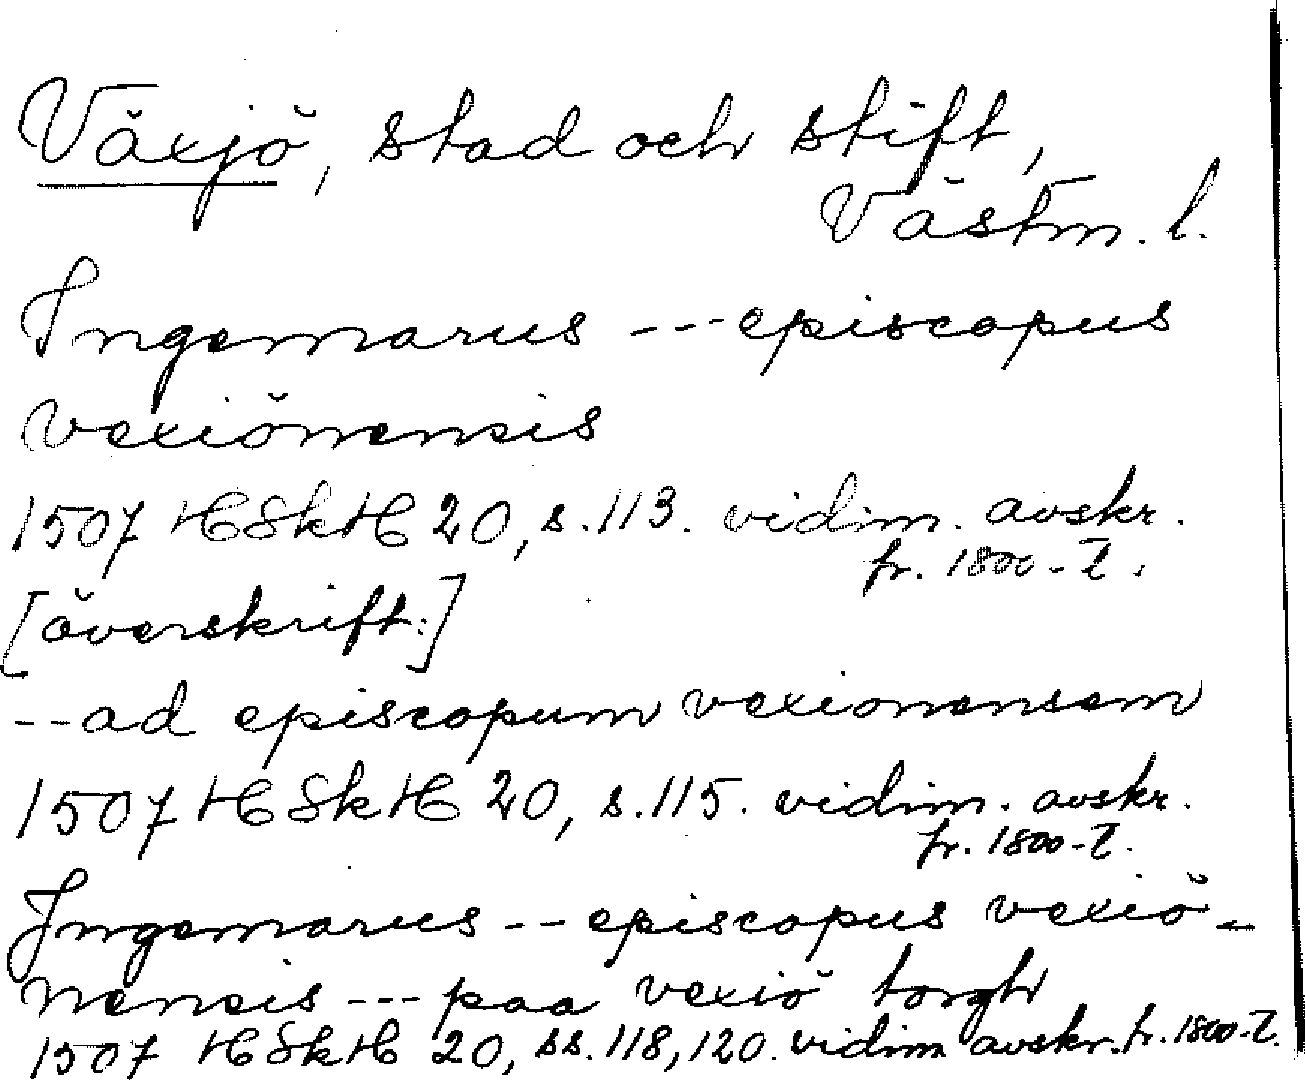 Växjö, stad och stift,
Västm. l.
Ingemarus --- episcopus
vexiönensis
1507 HSkH 20, s. 113. vidim. avskr.
fr. 1800-t.
[överskrift:]
-- ad episcopum vexionensem
1507 HSkH 20, s. 115. vidim. avskr.
fr. 1800-t.
Ingemarus -- episcopus vexiö-
nensis --- paa vexiö torgh
1507 HSkH 20, ss. 118, 120. vidim avskr. fr. 1800-t.